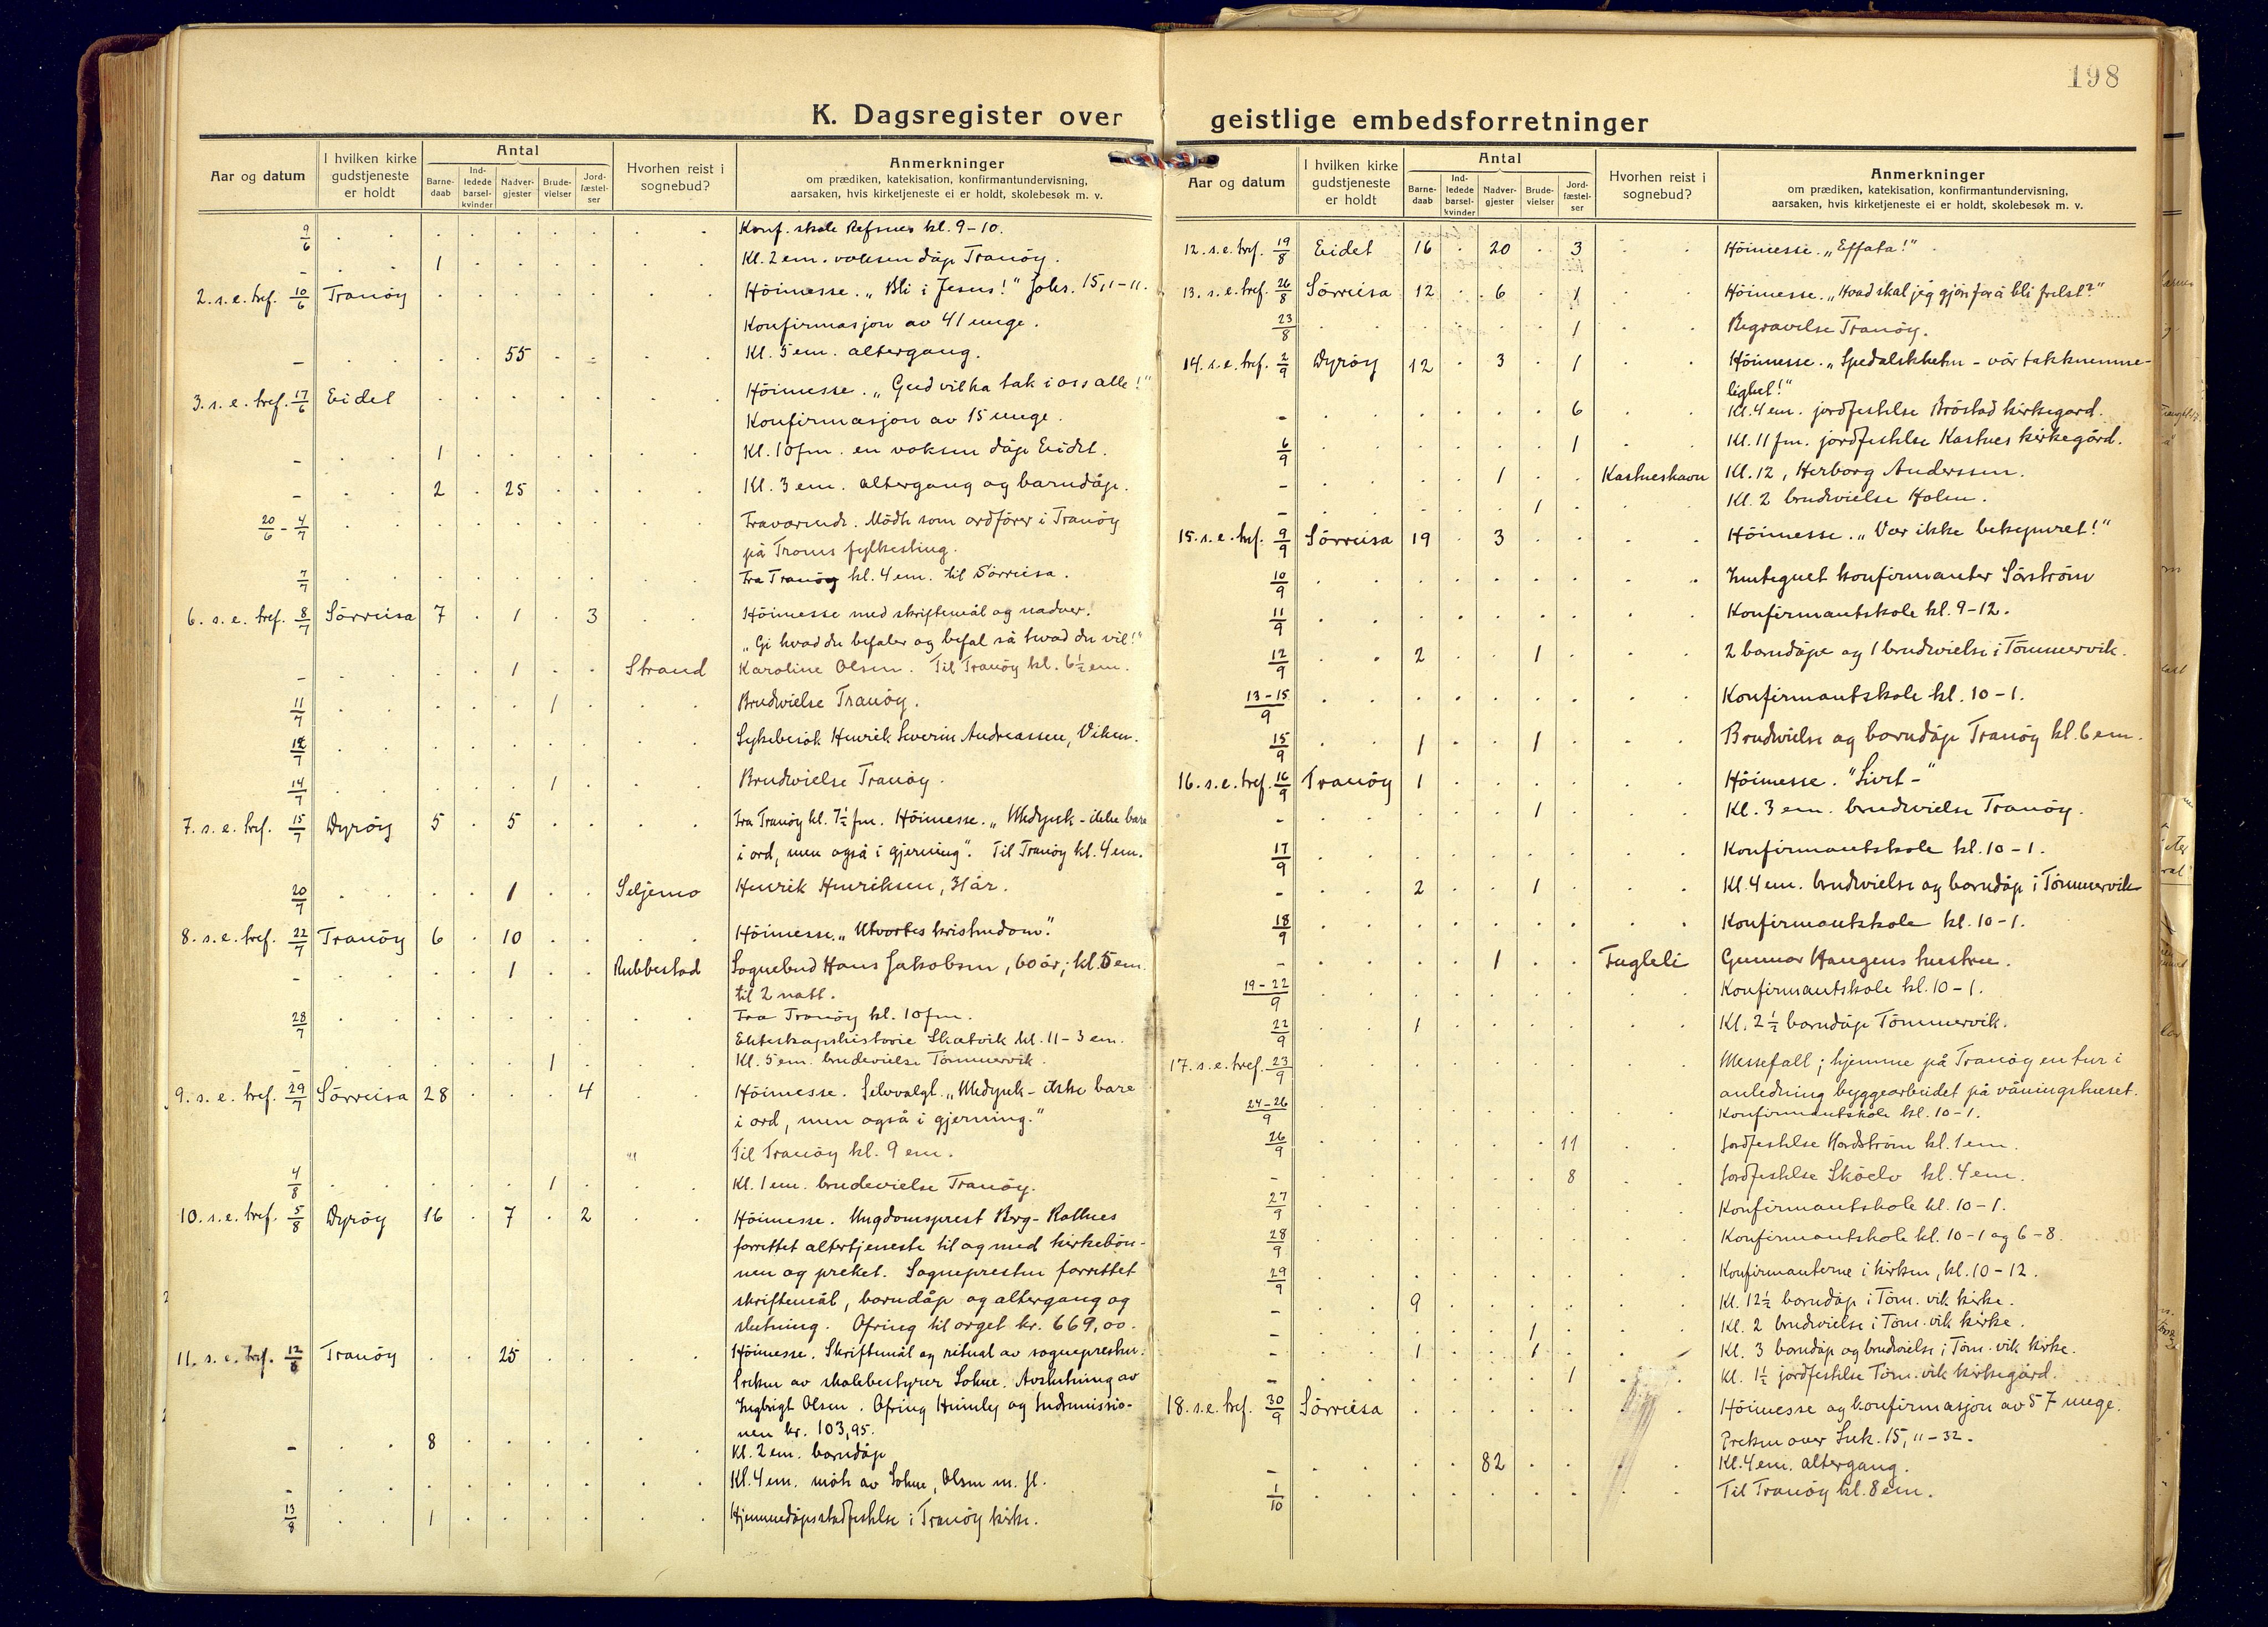 198
K. Dagsregister over geistlige embedsforretninger
Aar og datum
I hvilken kirke gudstjeneste er holdt
Antal
Barne-daab
Ind-ledede barsel-kvinder
Nadver-gjester
Brude-vielser
Jord-fæstel-ser
Hvorhen reist i sognebud?
Anmerkninger
om prædiken, katekisation, konfirmantundervisning,
aarsaken, hvis kirketjeneste ei er holdt, skolebesøk m. v.
9/6 Konf. skole Refsnes kl. 9-10.
- 1 Kl. 2 em. voksen dåp Tranöy.
2. s. e. tref. 10/6 Tranöy Höimesse. „Bli i Jesus!" Johs. 15, 1-11.
Konfirmasjon av 41 unge.
- 55 Kl. 5 em. altergang.
3. s. e. tref. 17/6 Eidet Höimesse. „Gud vil ha tak i oss alle!"
Konfirmasjon av 15 unge.
- 1 Kl. 10 fm. en voksen dåp Eidet.
- 2 25 Kl. 3 em. altergang og barndåp.
20/6 - 4/7 Fraværende. Mödte som ordförer i Tranöy
på Troms fylkesting.
7/7 Fra Tranöy kl. 4 em. til Sörreisa.
6. s. e. tref. 8/7 Sörreisa 7 1 3 Höimesse med skriftemål og nadver.
„Gi hvad du befaler og befal så hvad du vil!"
- 1 Strand Karoline Olsen. Til Tranöy kl. 6½ em.
11/7 1 Brudevielse Tranöy.
12/7 Sykebesök Henrik Severin Andreassen, Viken.
14/7 1 Brudevielse Tranöy.
7. s. e. tref. 15/7 Dyröy 5 5 Fra Tranöy kl. 7½ fm. Höimesse. „Medynk - ikke bare
i ord, men også i gjerning". Til Tranöy kl. 4 em.
20/7 1 Seljemo Henrik Henriksen, 31 år.
8. s. e. tref. 22/7 Tranöy 6 10 Höimesse. „Utvortes kristendom".
- 1 Rubbestad Sognebud Hans Jakobsen, 60 år; kl. 5 em.
til 2 natt.
28/7 Fra Tranöy kl. 10 fm.
Ekteskapshistorie Skatvik kl. 11-3 em.
- 1 Kl. 5 em. brudevielse Tömmervik.
9. s. e. tref. 29/7 Sörreisa 28 4 Höimesse. Selvvalgt. „Medynk - ikke bare
i ord, men også i gjerning."
Til Tranöy kl. 9 em.
4/8 1 Kl. 1 em. brudevielse Tranöy.
10. s. e. tref. 5/8 Dyröy 16 7 2 Höimesse. Ungdomsprest Berg-
forrettet altertjeneste til og med kirkebön-
nen og preket. Sognepresten forrettet
skriftemål, barndåp og altergang og
slutning. Ofring til orgel kr. 669,00.
11. s. e. tref. 12/8 Tranöy 25 Höimesse. Skriftemål og ritual av sognepresten.
Preken av skolebestyrer Sohne. Avslutning av
Ingbrigt Olsen. Ofring Heimly og Indremissio-
nen kr. 103,95.
- 8 Kl. 2 em. barndåp
- Kl. 4 em. möte av Sohne, Olsen m. fl.
13/8 1 Hjemmedåpsstadfestelse i Tranöy kirke.
Aar og datum
I hvilken kirke gudstjeneste er holdt
Antal
Barne-daab
Ind-ledede barsel-kvinder
Nadver-gjester
Brude-vielser
Jord-fæstel-ser
Hvorhen reist i sognebud?
Anmerkninger
om prædiken, katekisation, konfirmantundervisning,
aarsaken, hvis kirketjeneste ei er holdt, skolebesøk m. v.
12. s. e. tref. 19/8 Eidet 16 20 3 Höimesse. „Effata!"
13. s. e. tref. 26/8 Sörreisa 12 6 1 Höimesse. „Hvad skal jeg gjöre for å bli frelst?"
23/8 1 Begravelse Tranöy.
14. s. e. tref. 2/9 Dyröy 12 3 1 Höimesse. „Spedalskheten - vår takknemme-
lighet!"
- 6 Kl. 4 em. jordfestelse Bröstad kirkegard.
6/9 1 Kl. 11 fm. jordfestelse Kastnes kirkegård.
- 1 Kastneshavn Kl. 12, Herborg Anderssen.
- 1 Kl. 2 brudevielse Holm.
15. s. e. tref. 9/9 Sörreisa 19 3 Höimesse. „Vær ikke bekymret!"
10/9 Inntegnet konfirmanter Sörström
11/9 Konfirmantskole kl. 9-12.
12/9 2 1 2 barndåpe og 1 brudevielse i Tömmervik.
13-15/9 Konfirmantskole kl. 10-1.
15/9 1 1 Brudevielse og barndåp Tranöy kl. 6 em.
16. s. e. tref. 16/9 Tranöy 1 Höimesse. "Livet -"
- 1 Kl. 3 em. brudevielse Tranöy.
17/9 Konfirmantskole kl. 10-1.
- 2 1 Kl. 4 em. brudevielse og barndåp i Tömmervik
18/9 Konfirmantskole kl. 10-1.
- 1 Fugleli Gunnar Haugens hustru.
19-22/9 Konfirmantskole kl. 10-1.
22/9 1 Kl. 2½ barndåp Tömmervik.
17. s. e. tref. 23/9 Messefall; hjemme på Tranöy en tur i
anledning byggearbeidet på våningshuset.
24-26/9 Konfirmantskole kl. 10-1.
26/9 11 Jordfestelse Hordström kl. 1 em.
- 8 Jordfestelse Sköelv kl. 4 em.
27/9 Konfirmantskole kl. 10-1.
28/9 Konfirmantskole kl. 10-1 og 6-8.
29/9 Konfirmanterne i kirken, kl. 10-12.
- 9 Kl. 12½ barndåp i Töm. vik kirke.
- 1 Kl. 2 brudevielse i Töm. vik kirke.
- 1 1 Kl. 3 barndåp og brudevielse i Töm. vik kirke.
- 1 Kl. 1½ jordfestelse Töm. vik kirkegård.
18. s. e. tref. 30/9 Sörreisa Höimesse og konfirmasjon av 57 unge.
Preken over Luk. 15, 11-32.
- 82 Kl. 4 em. altergang.
1/10 Til Tranöy kl. 8 em.